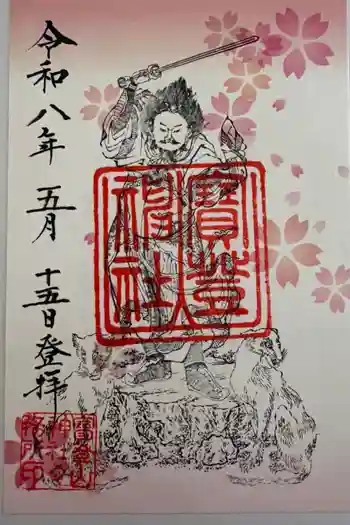 令和八年 五月 十五日登拝
寶登山
神社
寶登山
神社
務所印